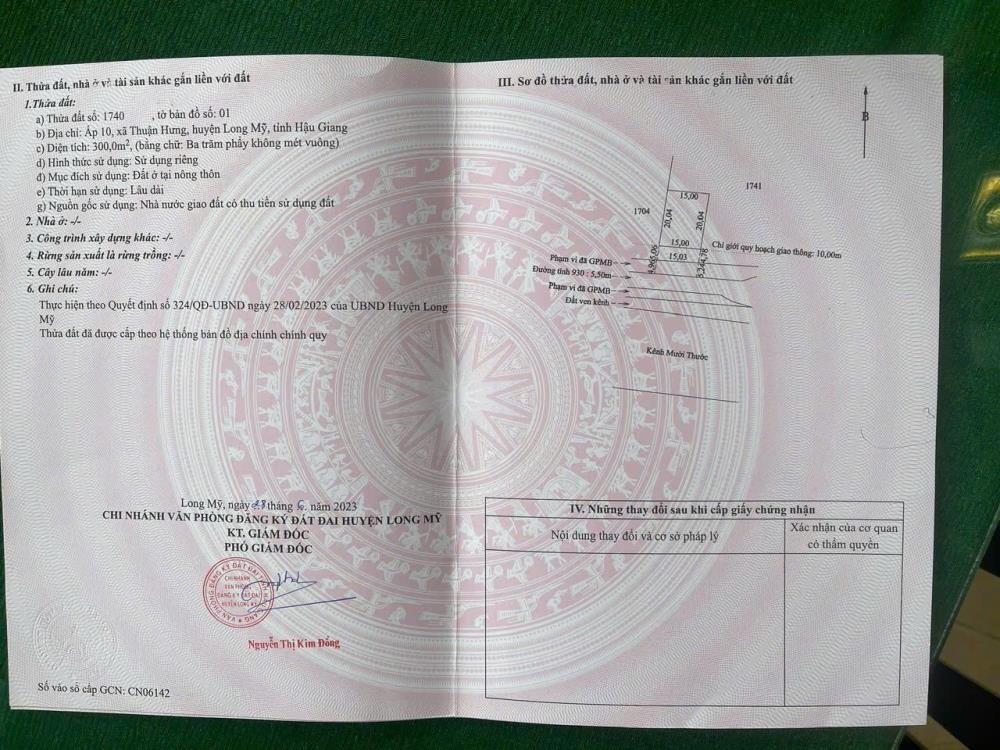 II. Thửa đất, nhà ở và tài sản khác gắn liền với đất
1.Thửa đất:
a) Thửa đất số: 1740 , tờ bản đồ số: 01
b) Địa chỉ: Ấp 10, xã Thuận Hưng, huyện Long Mỹ, tỉnh Hậu Giang
c) Diện tích: 300,0m², (bằng chữ: Ba trăm phẩy không mét vuông)
d) Hình thức sử dụng: Sử dụng riêng
đ) Mục đích sử dụng: Đất ở tại nông thôn
e) Thời hạn sử dụng: Lâu dài
g) Nguồn gốc sử dụng: Nhà nước giao đất có thu tiền sử dụng đất
2. Nhà ở: -/-
3. Công trình xây dựng khác: -/-
4. Rừng sản xuất là rừng trồng: -/-
5. Cây lâu năm: -/-
6. Ghi chú:
Thực hiện theo Quyết định số 324/QĐ-UBND ngày 28/02/2023 của UBND Huyện Long
Mỹ
Thửa đất đã được cấp theo hệ thống bản đồ địa chính chính quy
Long Mỹ, ngày 28 tháng 6 năm 2023
CHI NHÁNH VĂN PHÒNG ĐĂNG KÝ ĐẤT ĐAI HUYỆN LONG MỸ
KT. GIÁM ĐỐC
PHÓ GIÁM ĐỐC
CHI NHÁNH
VĂN PHÒNG
ĐĂNG KÝ ĐẤT ĐAI
HUYỆN LONG MỸ
Nguyễn Thị Kim Đồng
Số vào sổ cấp GCN: CN06142
III. Sơ đồ thửa đất, nhà ở và tài sản khác gắn liền với đất
B
1741
15,00
1704
20,04
20,04
15,00
Chỉ giới quy hoạch giao thông: 10,00m
15,03
4,965,06
5,264,78
Phạm vi đã GPMB
Đường tỉnh 930 : 5,50m
Phạm vi đã GPMB
Đất ven kênh
Kênh Mười Thước
IV. Những thay đổi sau khi cấp giấy chứng nhận
Nội dung thay đổi và cơ sở pháp lý
Xác nhận của cơ quan
có thẩm quyền